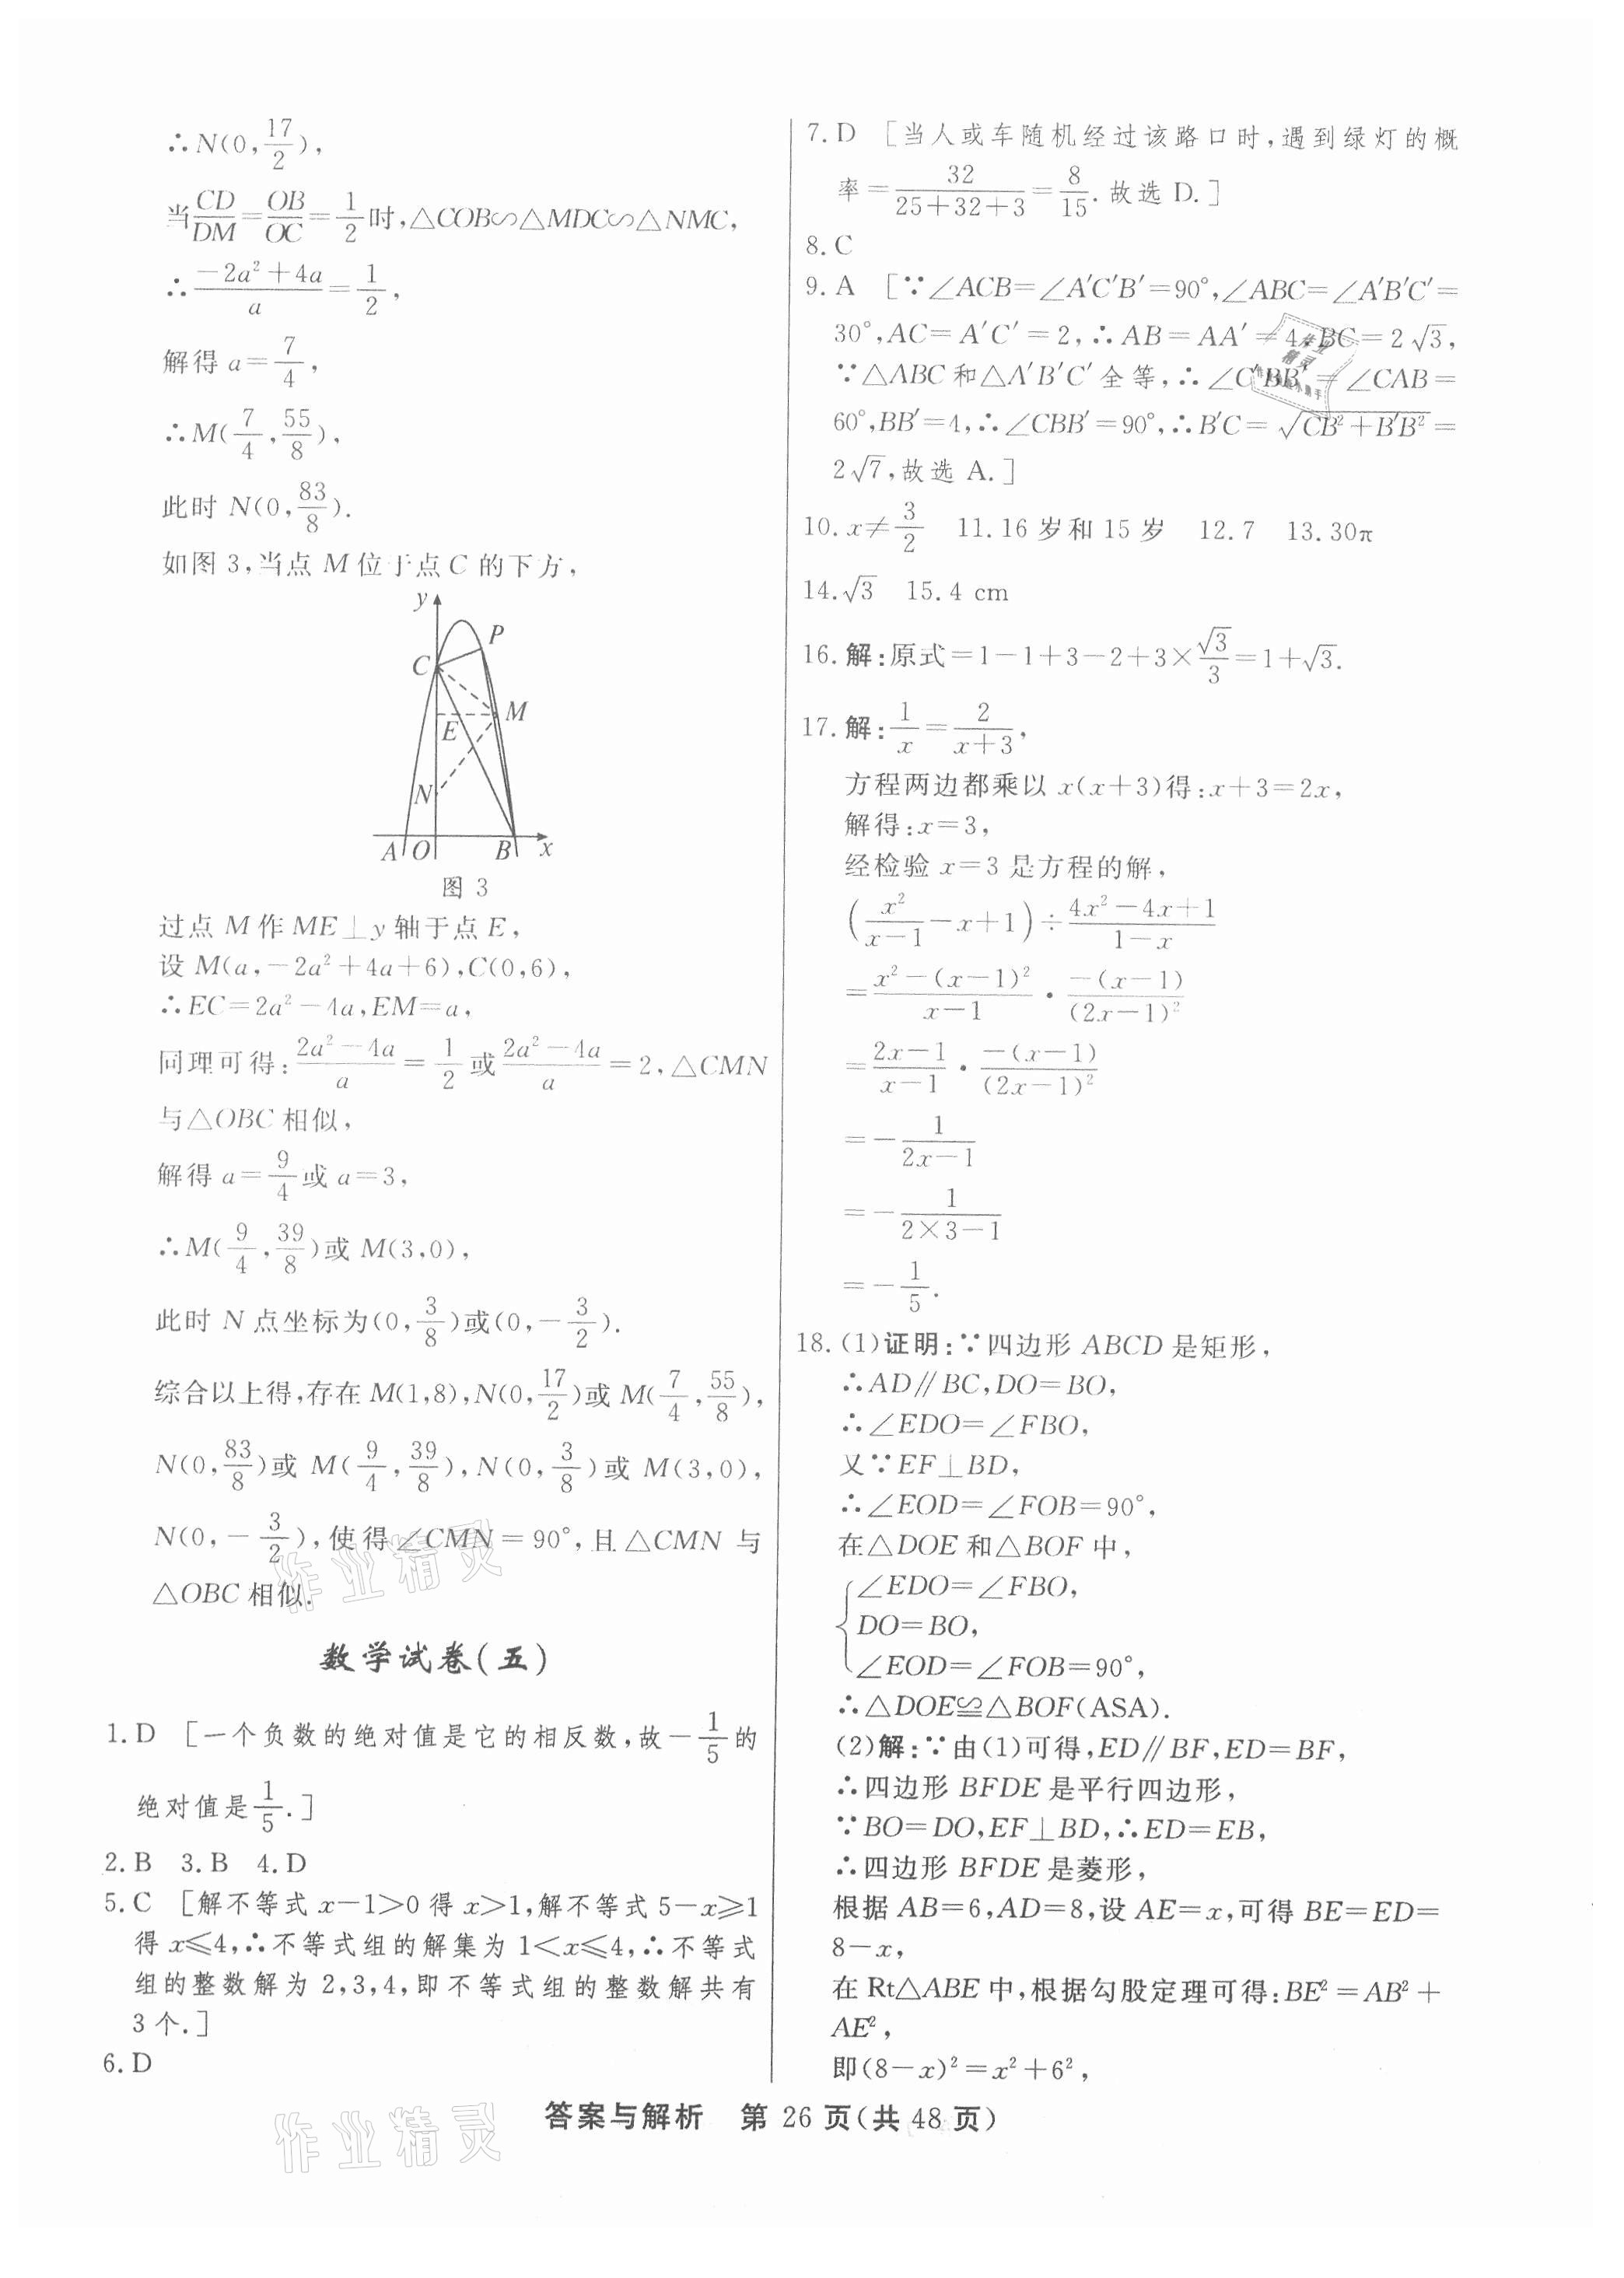 ∴N(0,17/2),
当CD/DM=OB/OC=1/2时,△COB∽△MDC∽△NMC,
∴(-2a²+4a)/a=1/2,
解得 a=7/4,
∴M(7/4,55/8),
此时 N(0,83/8).
如图 3,当点 M 位于点 C 的下方,
y
P
C
M
E
N
A O B x
图 3
过点 M 作 ME⊥y 轴于点 E,
设 M(a,-2a²+4a+6),C(0,6),
∴EC=2a²-4a,EM=a,
同理可得:(2a²-4a)/a=1/2或(2a²-4a)/a=2,△CMN
与△OBC 相似,
解得 a=9/4或 a=3,
∴M(9/4,39/8)或 M(3,0),
此时 N 点坐标为(0,3/8)或(0,-3/2).
综合以上得,存在 M(1,8),N(0,17/2)或 M(7/4,55/8),
N(0,83/8)或 M(9/4,39/8),N(0,3/8)或 M(3,0),
N(0,-3/2),使得∠CMN=90°,且△CMN 与
△OBC 相似.
数学试卷(五)
1.D [一个负数的绝对值是它的相反数,故-1/5的
绝对值是1/5.]
2.B 3.B 4.D
5.C [解不等式 x-1>0 得 x>1,解不等式 5-x≥1
得 x≤4,∴不等式组的解集为 1<x≤4,∴不等式
组的整数解为 2,3,4,即不等式组的整数解共有
3 个.]
6.D
7.D [当人或车随机经过该路口时,遇到绿灯的概
率=32/(25+32+3)=8/15.故选 D.]
8.C
9.A [∵∠ACB=∠A′C′B′=90°,∠ABC=∠A′B′C′=
30°,AC=A′C′=2,∴AB=AA′=4,BC=2√3,
∵△ABC 和△A′B′C′全等,∴∠C′BB′=∠CAB=
60°,BB′=4,∴∠CBB′=90°,∴B′C=√(CB²+B′B²)=
2√7,故选 A.]
10.x≠3/2 11.16 岁和 15 岁 12.7 13.30π
14.√3 15.4 cm
16.解:原式=1-1+3-2+3×√3/3=1+√3.
17.解:1/x=2/(x+3),
方程两边都乘以 x(x+3)得:x+3=2x,
解得:x=3,
经检验 x=3 是方程的解,
(x²/(x-1)-x+1)÷(4x²-4x+1)/(1-x)
=(x²-(x-1)²)/(x-1)·(-(x-1))/(2x-1)²
=(2x-1)/(x-1)·(-(x-1))/(2x-1)²
=-1/(2x-1)
=-1/(2×3-1)
=-1/5.
18.(1)证明:∵四边形 ABCD 是矩形,
∴AD∥BC,DO=BO,
∴∠EDO=∠FBO,
又∵EF⊥BD,
∴∠EOD=∠FOB=90°,
在△DOE 和△BOF 中,
{∠EDO=∠FBO,
DO=BO,
∠EOD=∠FOB=90°,
∴△DOE≌△BOF(ASA).
(2)解:∵由(1)可得,ED∥BF,ED=BF,
∴四边形 BFDE 是平行四边形,
∵BO=DO,EF⊥BD,∴ED=EB,
∴四边形 BFDE 是菱形,
根据 AB=6,AD=8,设 AE=x,可得 BE=ED=
8-x,
在 Rt△ABE 中,根据勾股定理可得:BE²=AB²+
AE²,
即(8-x)²=x²+6²,
答案与解析 第 26 页(共 48 页)
作业精灵
作业精灵